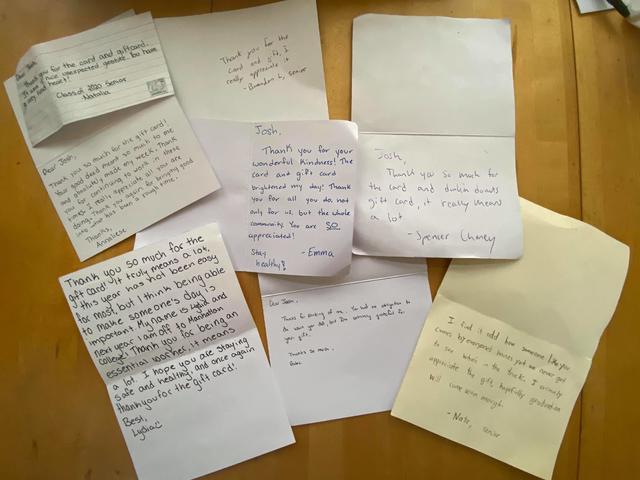 Dear Josh,
Thank you for the card and giftcard.
nice unexpected gesture. You have
a very kind heart!
Class of 2020 Senior
Natalia
Thank you for the
card and gift, I
really appreciate it
- Brandon L, senior
Dear Josh,
Thank you so much for the gift card!
Your good deed meant so much to me
and absolutely made my week. Thank
you for continuing to work in these
times. I really appreciate all you are
doing. Thank you again for bringing good
into what has been a rough time.
Thanks,
Annaliese
Josh,
Thank you for your
wonderful kindness! The
card and gift card
brightened my day! Thank
you for all you do, not
only for us, but the whole
community. You are SO
appreciated!
Stay
healthy!
- Emma
Josh,
Thank you so much for
the card and dunkin donuts
gift card, it really means
a lot
- Spencer
Thank you so much for the
gift card! It truly means a lot.
this year has not been easy
for most, but I think being able
to make someone's day is
important. My name is Lydia and
next year I am off to Manhattan
college! Thank you for being an
essential worker, it means
a lot. I hope you are staying
safe and healthy, and once again
thank you for the gift card!
Best,
Lydia
Dear Josh,
Thanks for thinking of me. You had no obligation to
do what you did, but I'm extremely grateful for
your gift.
Thanks so much,
I find it odd how someone like you
comes by everyones houses yet we never get
to see whos in the truck. I
appreciate the gift, hopefully graduation
will come soon enough.
- Nate, senior